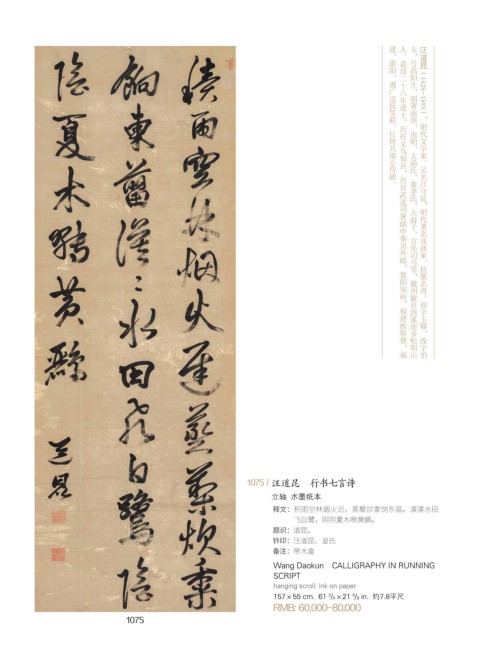 積雨空林烟火遲蒸藜炊黍
餉東菑漠〻水田飛白鷺陰
陰夏木囀黃鸝
道昆
汪道昆(1525-1593),明代文学家,又名汪守昆,明代著名戏曲家,抗倭名将,初字玉卿,改字伯
玉,号高阳生,别署南溟、南明、太函氏、泰茅氏、天游子、方外司马等。徽州歙县西溪南乡松明山
人,嘉靖二十六年进士,历任义乌知县、历官武选司署郎中事员外郎、襄阳知府、福建按察使、福
建、郧阳、湖广巡抚等职,仕终兵部左侍郎。
1075 / 汪道昆 行书七言诗
立轴 水墨纸本
释文:积雨空林烟火迟,蒸藜炊黍饷东菑。漠漠水田
飞白鹭,阴阴夏木啭黄鹂。
题识:道昆。
钤印:汪道昆、皇氏
备注:带木盒
Wang Daokun CALLIGRAPHY IN RUNNING
SCRIPT
hanging scroll; ink on paper
157 × 55 cm. 61 3/4 × 21 5/8 in. 约7.8平尺
RMB: 60,000-80,000
1075